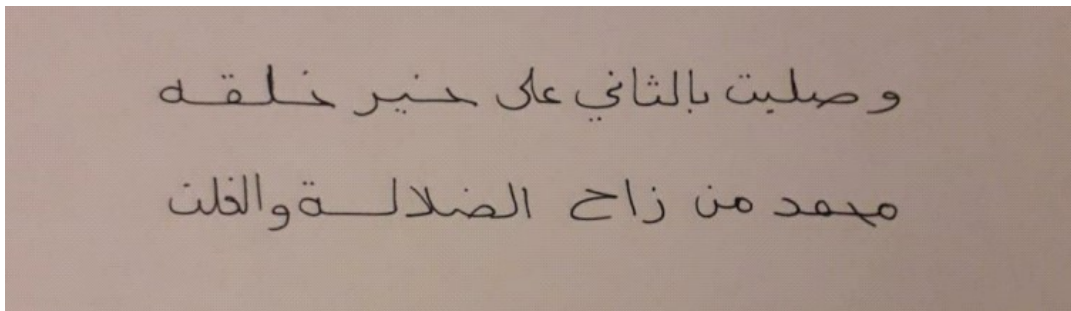 وصليت بالثاني على خير خلقه
محمد من زاح الضلالة والغلت